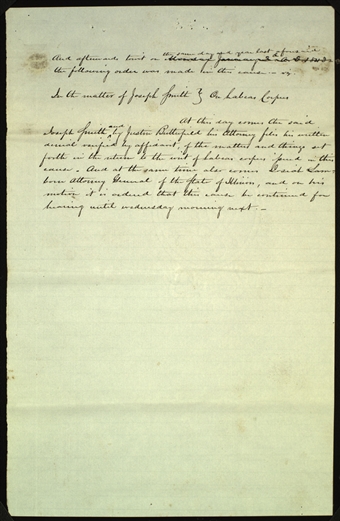 the same day and year last aforesaid
And afterwards to wit on Monday January 2d A D 1843
the following order was made in this cause - viz
In the matter of Joseph Smith } On habeas Corpus
At this day comes the said
Joseph Smith and by Justin Butterfield his Attorney files his written
denial verified by affidavit, of the matters and things set
forth in the return to the writ of habeas corpus issued in this
cause. And at the same time also comes Josiah Lam-
born Attorney General of the State of Illinois, and on his
motion it is ordered that this cause be continued for
hearing until wednesday morning next. -